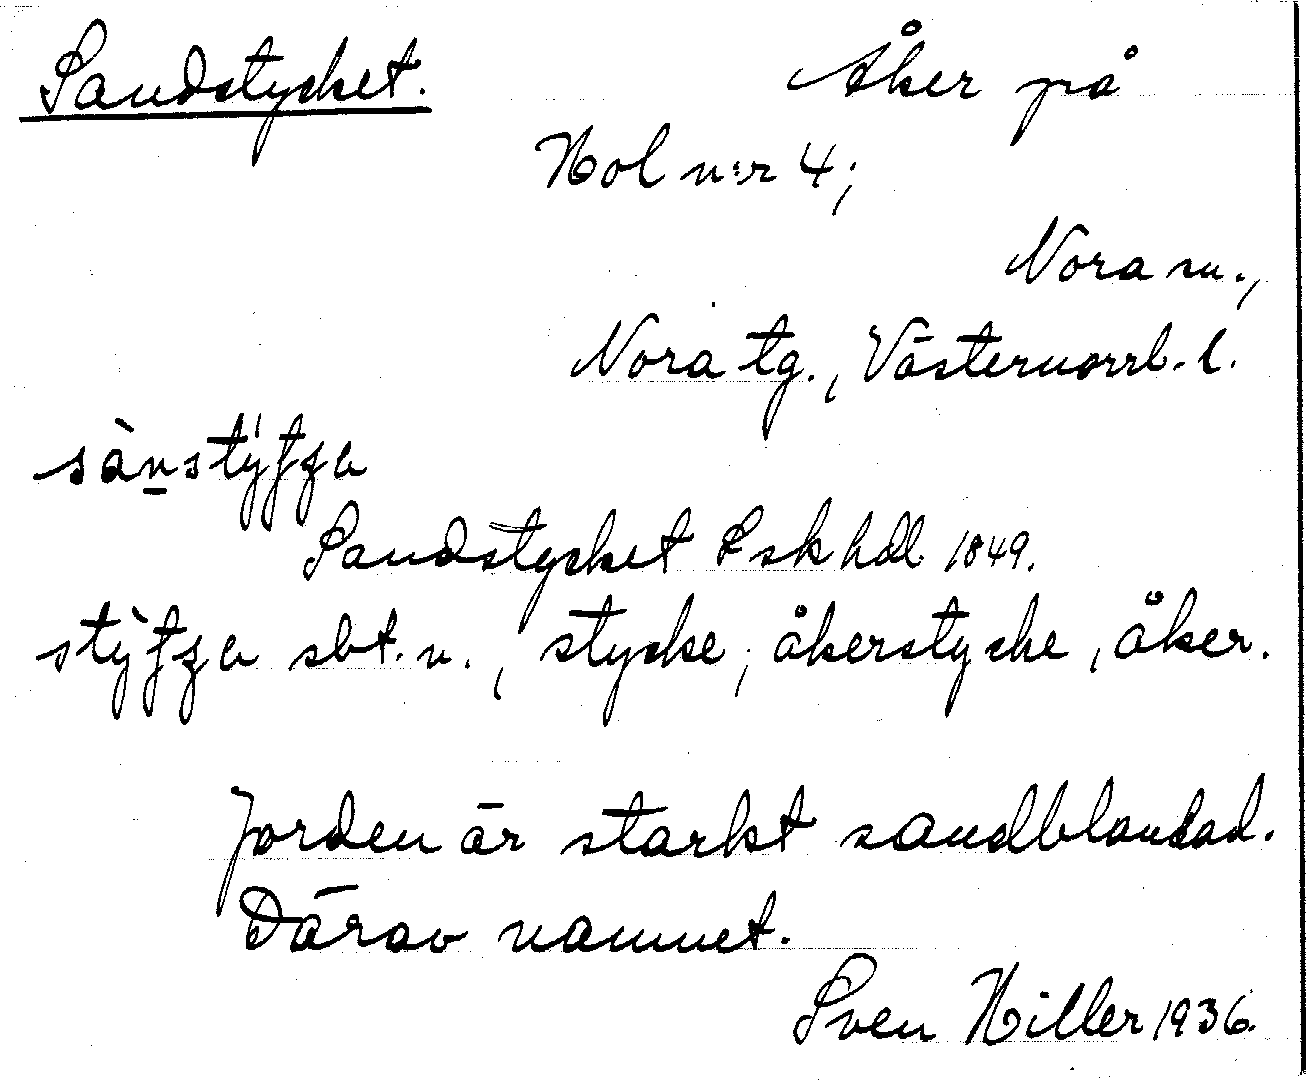 Sandstycket. Åker på
Hol n:r 4;
Nora sn.,
Nora tg., Västernorrl. l.
Sandstycket Lsk hdl. 1849.
sbt. n., stycke; åkerstycke, åker.
Jorden är starkt sandblandad.
Därav namnet.
Sven Hiller 1936.